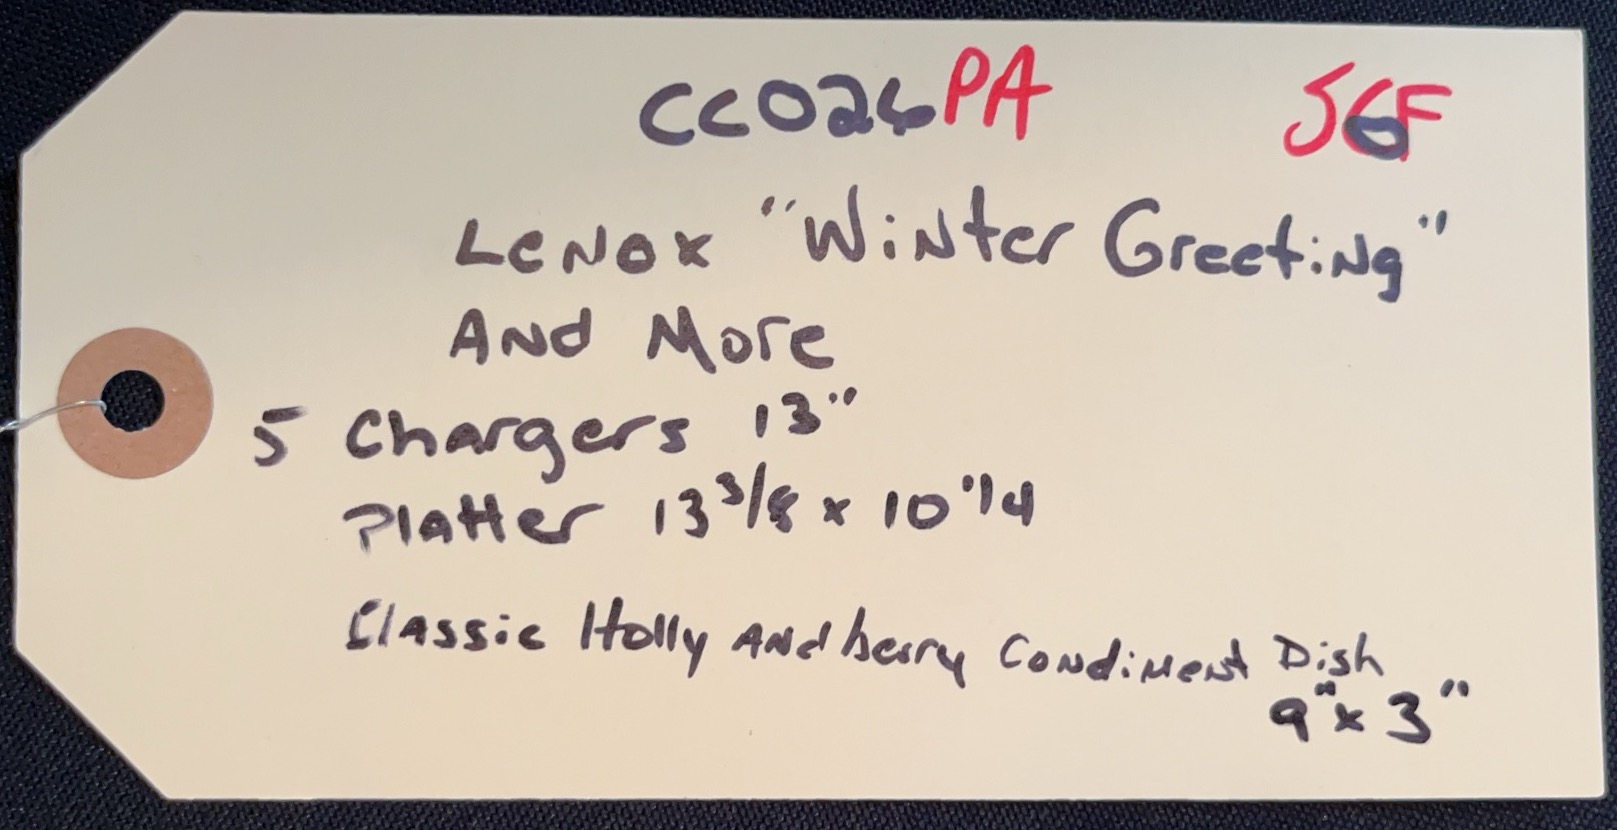 CC026PA J6F
Lenox "Winter Greeting"
And More
5 Chargers 13"
Platter 13 3/8 x 10 1/4
Classic Holly And berry Condiment Dish
9" x 3"